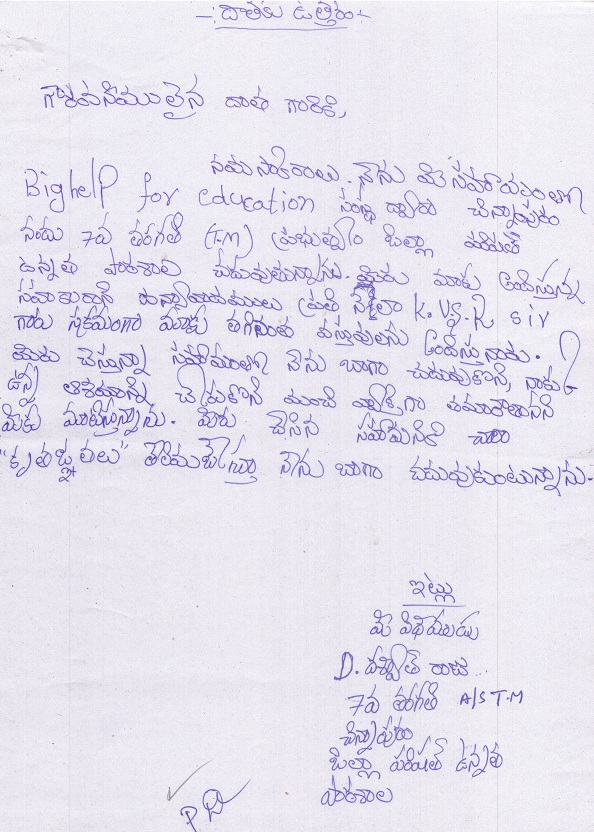 -: దాతకు ఉత్తరం :-
గౌరవనీములైన దాత గారికి,
నమస్కారాలు. నేను మీ సహాయంలా
Bighelp for education సంస్థ ద్వారా చిన్నాపురం
నందు 7వ తరగతి (T.M) ప్రభుత్వం జిల్లా పరిషత్
ఉన్నత పాఠశాల చదువుతున్నాను. మీరు మాకు అందిస్తున్న
సహకారానికి ధన్యావాదములు ప్రతి నెలా K.V.S.R sir
గారు సక్రమంగా మాకు తగినంత వస్తువులను అందిస్తునారు.
మీరు చేస్తున్నా సహాయంలా నేను బాగా చదువుకొని, నాకు
ఉన్న ఆశయాన్ని చేరుకొని మంచి వ్యక్తిగా తయారౌతానని
మీకు మాటిస్తున్నాను. మీరు చేసిన సహాయనికి చాలా
"కృతజ్ఞతలు" తెలియజేస్తూ నేను బాగా చదువుకుంటున్నాను.
ఇట్లు
మీ విధేయుడు
D. దశ్వంత్ రాజు
7వ తరగతి A/S T.M
చిన్నాపురం
జిల్లా పరిషత్ ఉన్నత
పాఠశాల